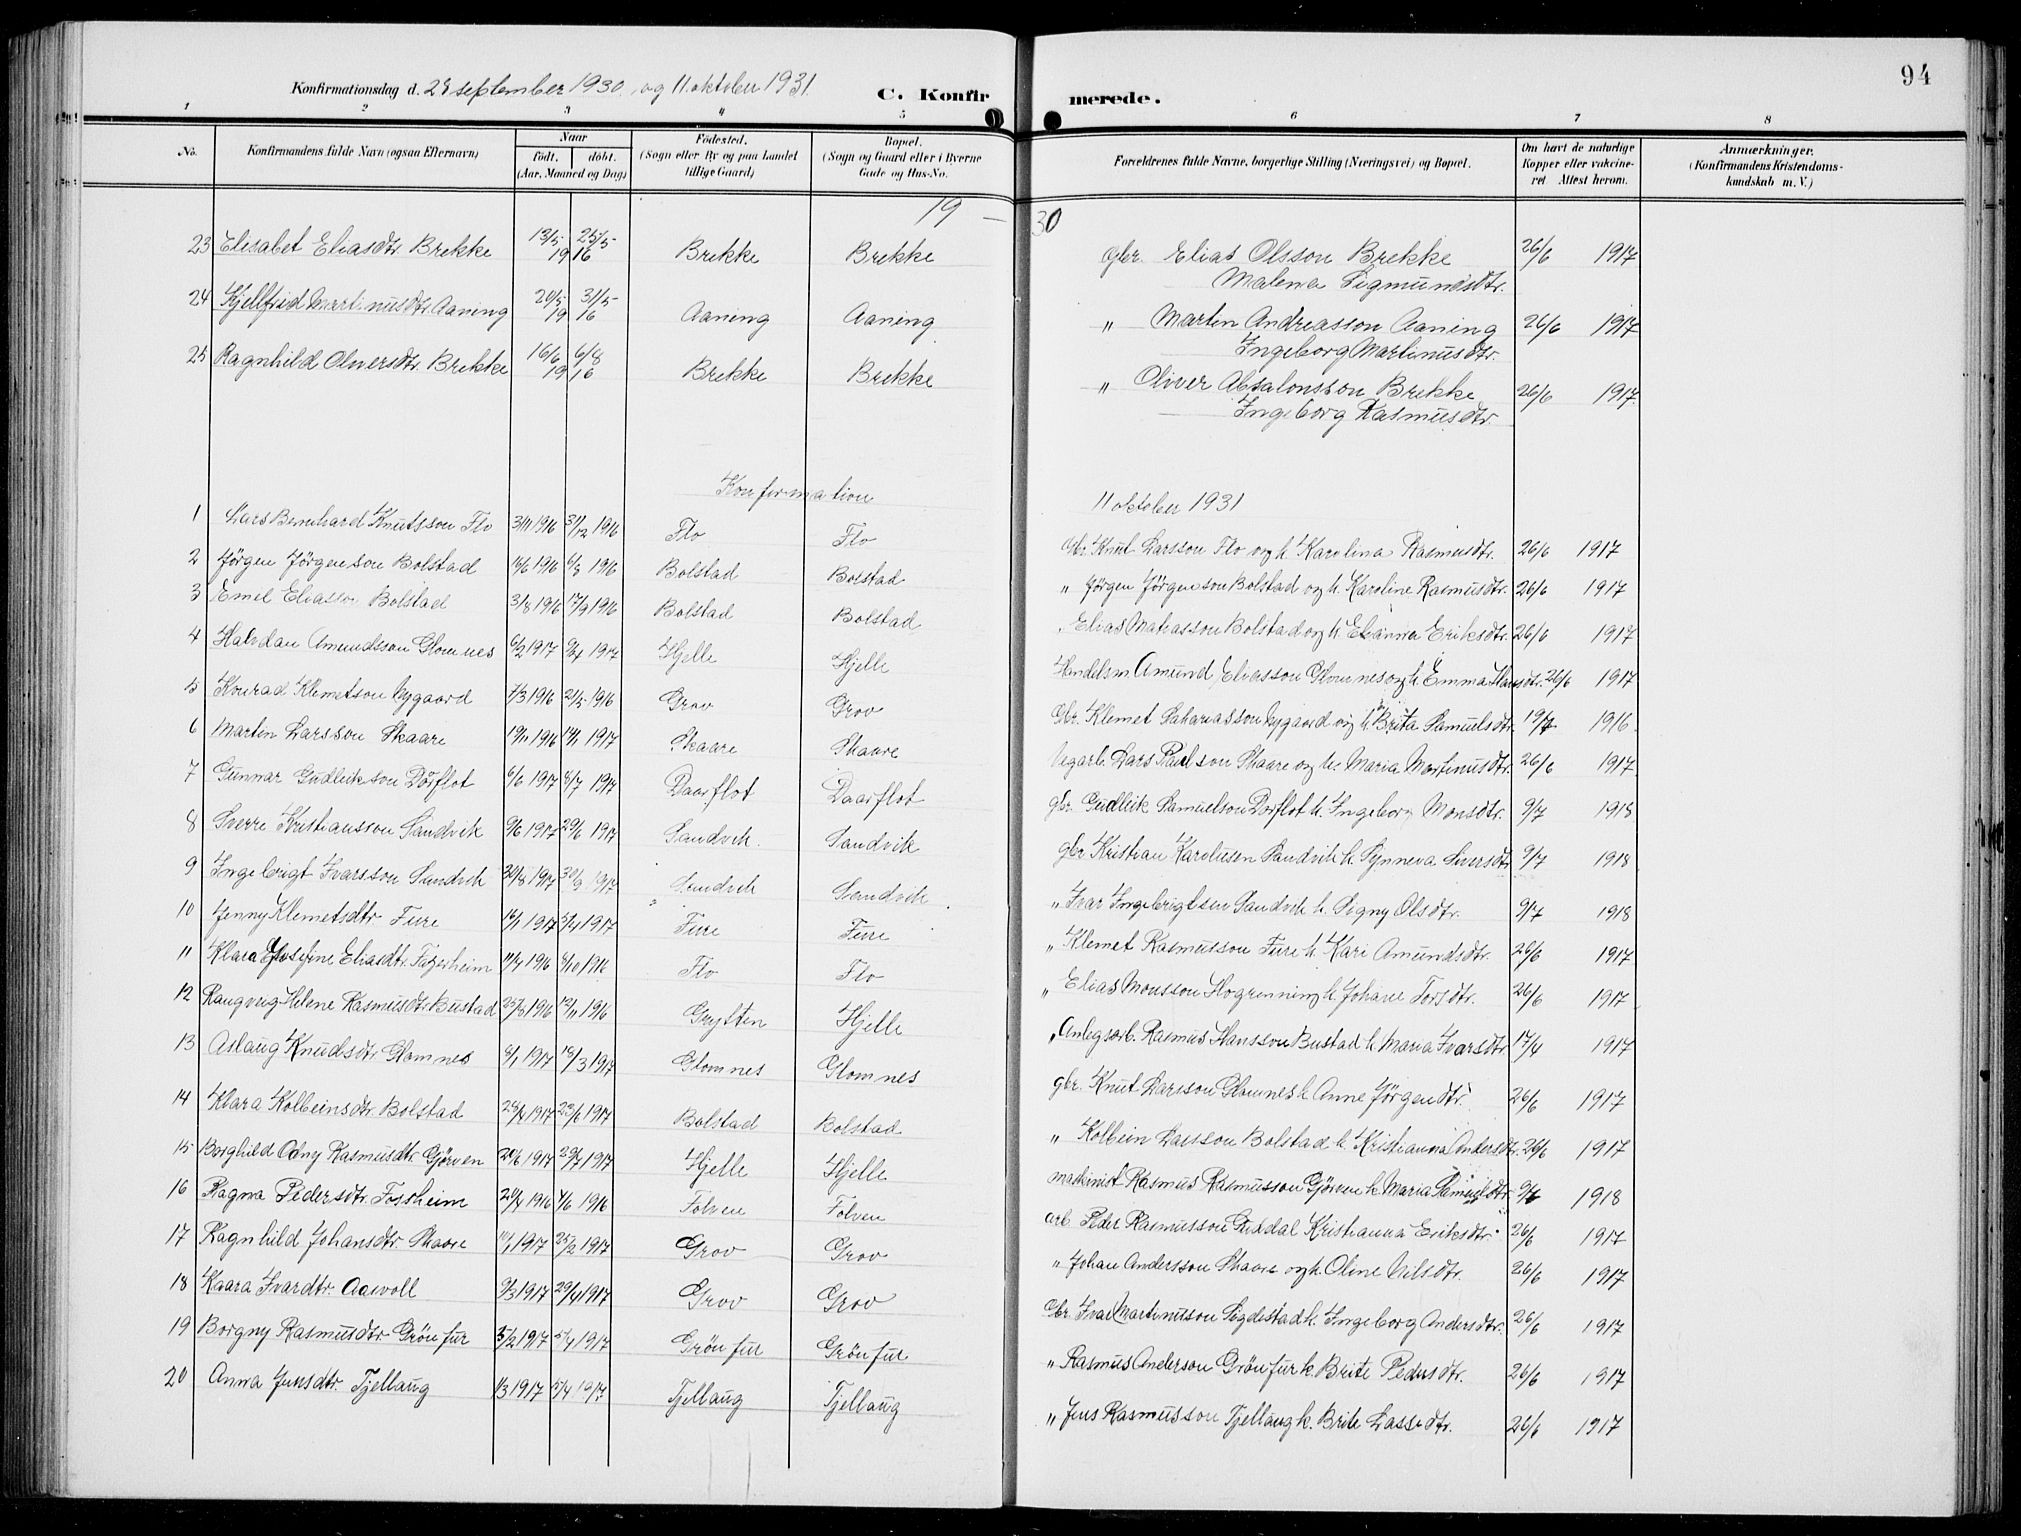 94
Konfirmationsdag d. 28 september 1930 og 11. oktober 1931.
C. Konfirmerede.
1 2 3 4 5 6 7 8
No. Konfirmandens fulde Navn (ogsaa Efternavn) Naar født. døbt. (Aar, Maaned og Dag) Fødested. (Sogn eller By og paa Landet tillige Gaard) Bopæl. (Sogn og Gaard eller i Byerne Gade og Hus-No. Forældrenes fulde Navne, borgerlige Stilling (Næringsvei) og Bopæl. Om havt de naturlige Kopper eller vakcineret. Attest herom. Anmærkninger. (Konfirmandens Kristendomskundskab m. V.)
19 — 30
23 Elisabet Eliasdtr. Brekke 13/5 25/5 1916 Brekke Brekke gbr. Elias Olsson Brekke 26/6 1917
Malena Sigmundsdtr.
24 Kjellfrid Martinusdtr. Aaning 20/5 31/5 1916 Aaning Aaning " Marten Andreasson Aaning 26/6 1917
Ingeborg Martinusdtr.
25 Ragnhild Oliversdtr. Brekke 16/6 6/8 1916 Brekke Brekke " Oliver Absalonsson Brekke 26/6 1917
Ingeborg Rasmusdtr.
Konfirmation 11 oktober 1931
1 Lars Bernhard Knutsson Flo 3/11 1916 31/12 1916 Flo Flo Gbr. Knut Larsson Flo og h. Karolina Rasmusdtr. 26/6 1917
2 Jørgen Jørgenson Bolstad 1916 6/8 1916 Bolstad Bolstad " Jørgen Jørgenson Bolstad og h. Karoline Rasmusdtr. 26/6 1917
3 Emel Eliasson Bolstad 3/8 1916 17/9 1916 Bolstad Bolstad " Elias Matiasson Bolstad og h. Eriksdtr. 26/6 1917
4 Halvdan Amundsson Glomnes 6/2 1917 9/4 1917 Hjelle Hjelle Handelsm. Amund Eliasson Glomnes og h. Emma Hansdtr. 26/6 1917
5 Konrad Klemetson Nygaard 7/3 1916 21/5 1916 Grov Grov Gbr. Klemet Sakariasson Nygaard og h. Brita Samuelsdtr. 19/7 1916
6 Marten Larsson Skaare 19/11 1916 14/1 1917 Skaare Skaare Vegarb. Lars Paulson Skaare og h. Maria Martinusdtr. 26/6 1917
7 Gunnar Gudleikson Dörflot 6/6 1917 8/7 1917 Daarflot Daarflot gbr. Gudleik Samuelson Dörflot h. Ingeborg Monsdtr. 9/7 1918
8 Sverre Kristiansson Sandvik 9/6 1917 29/6 1917 Sandvik Sandvik gbr Kristian Karolusen Sandvik h. Synneva Siversdtr 9/7 1918
9 Ingebrigt Ivarsson Sandvik 30/8 1917 30/9 1917 Sandvik Sandvik " Ivar Ingebrigtsen Sandvik h. Signy Olsdtr. 9/7 1918
10 Jenny Klemetsdtr Fure 16/1 1917 1917 Fure Fure " Klemet Rasmusson Fure h. Kari Amundsdtr. 26/6 1917
11 Klara Josefine Eliasdtr. 1916 8/10 1916 Flo Flo " Elias Monsson h. Johane Torsdtr. 26/6 1917
12 Rangveig Helene Rasmusdtr. Bustad 25/8 1916 12/11 1916 Grytten Hjelle " Anlegsarb. Rasmus Hansson Bustad h. Maria Ivarsdtr. 17/4 1917
13 Aslaug Knudsdtr Glomnes 8/1 1917 18/3 1917 Glomnes Glomnes gbr. Knut Larsson Glomnes h. Anne Jörgendtr. 26/6 1917
14 Klara Kolbeinsdtr. Bolstad 24/4 1917 23/6 1917 Bolstad Bolstad " Kolbein Larsson Bolstad h. Kristianna Andersdtr. 26/6 1917
15 Borghild Odny Rasmusdtr. Gjörven 20/6 1917 29/7 1917 Hjelle Hjelle maskinist Rasmus Rasmusson Gjörven h. Maria Samuelsdtr. 9/7 1918
16 Ragna Pedersdtr. Fossheim 20/4 1916 4/6 1916 Folven Folven arb. Peder Rasmusson Kristianna Eriksdtr. 26/6 1917
17 Ragnhild Johansdtr. Skaare 11/1 1917 25/2 1917 Grov Grov " Johan Andersson Skaare og h. Oline Nilsdtr. 26/6 1917
18 Kaara Ivardtr. Aavoll 9/3 1917 29/4 1917 Grov Grov Gbr. Ivar Martinusson Sigdestad h. Ingeborg Andersdtr. 26/6 1917
19 Borgny Rasmusdtr Grönfur 5/2 1917 5/4 1917 Grönfur Grönfur " Rasmus Anderson Grönfur h. Brite Pedersdtr. 26/6 1917
20 Anna Jensdtr. Tjellaug 1/3 1917 5/4 1917 Tjellaug Tjellaug " Jens Rasmusson Tjellaug h. Brite Lassedtr. 26/6 1917